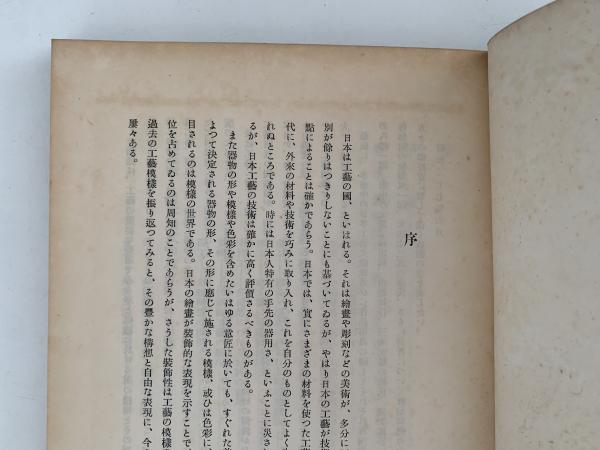 序
日本は工藝の國、といはれる。それは繪畫や彫刻などの美術が、多分に
別が餘りはつきりしないことにも基づいてゐるが、やはり日本の工藝が技
點によることは確かであらう。日本では、實にさまざまの材料を使つた工藝
代に、外來の材料や技術を巧みに取り入れ、これを自分のものとしてよく
れぬところである。時には日本人特有の手先の器用さ、といふことに災さ
るが、日本工藝の技術は確かに高く評價さるべきものがある。
また器物の形や模樣や色彩を含めたいはゆる意匠に於いても、すぐれた
よつて決定される器物の形、その形に應じて施される模樣、或ひは色彩に、
目されるのは模樣の世界である。日本の繪畫が裝飾的な表現を示すことで、
位を占めてゐるのは周知のことであらうが、さうした裝飾性は工藝の模樣
過去の工藝模樣を振り返つてみると、その豊かな構想と自由な表現に、今
屢々ある。